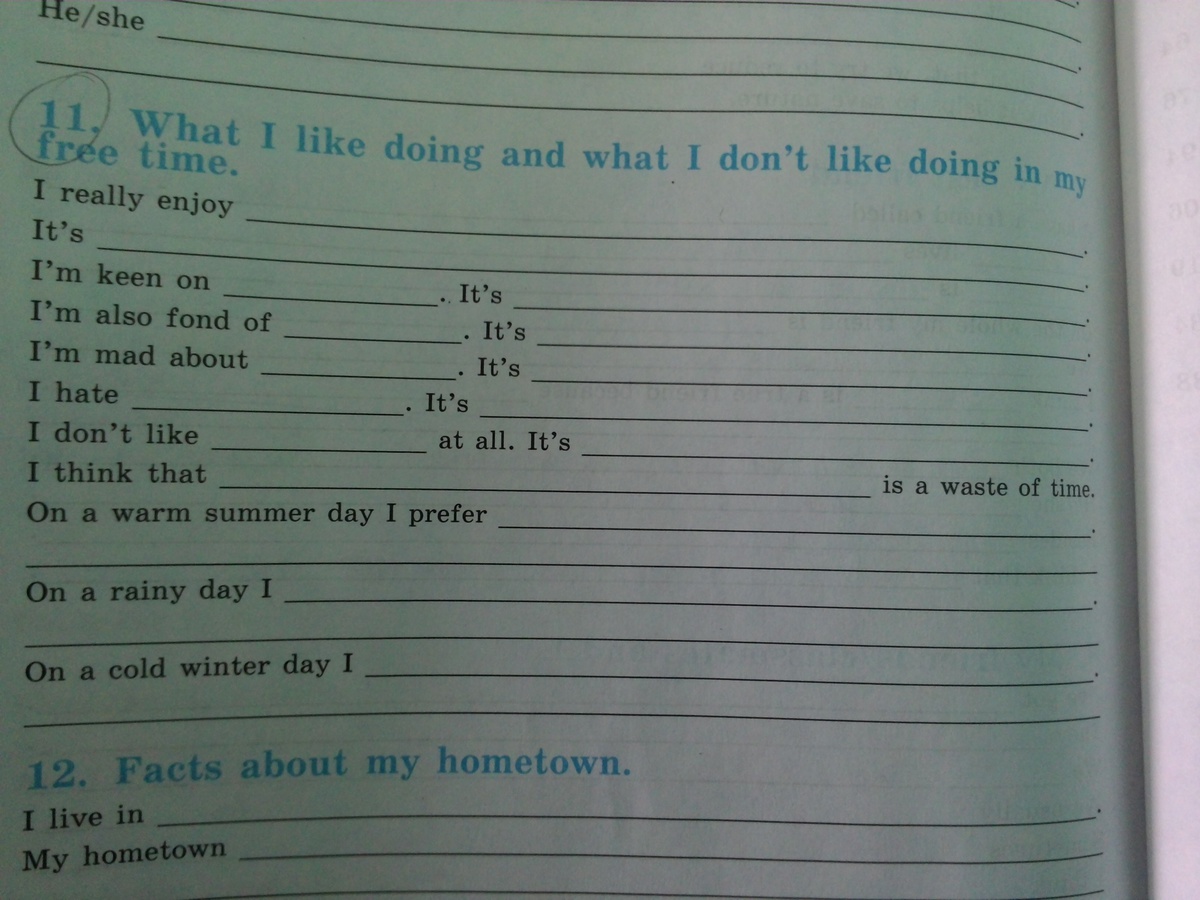 He/she
11. What I like doing and what I don't like doing in my
free time.
I really enjoy .
It's .
I'm keen on . It's .
I'm also fond of . It's .
I'm mad about . It's .
I hate . It's .
I don't like at all. It's .
I think that is a waste of time.
On a warm summer day I prefer .
On a rainy day I .
On a cold winter day I .
12. Facts about my hometown.
I live in .
My hometown